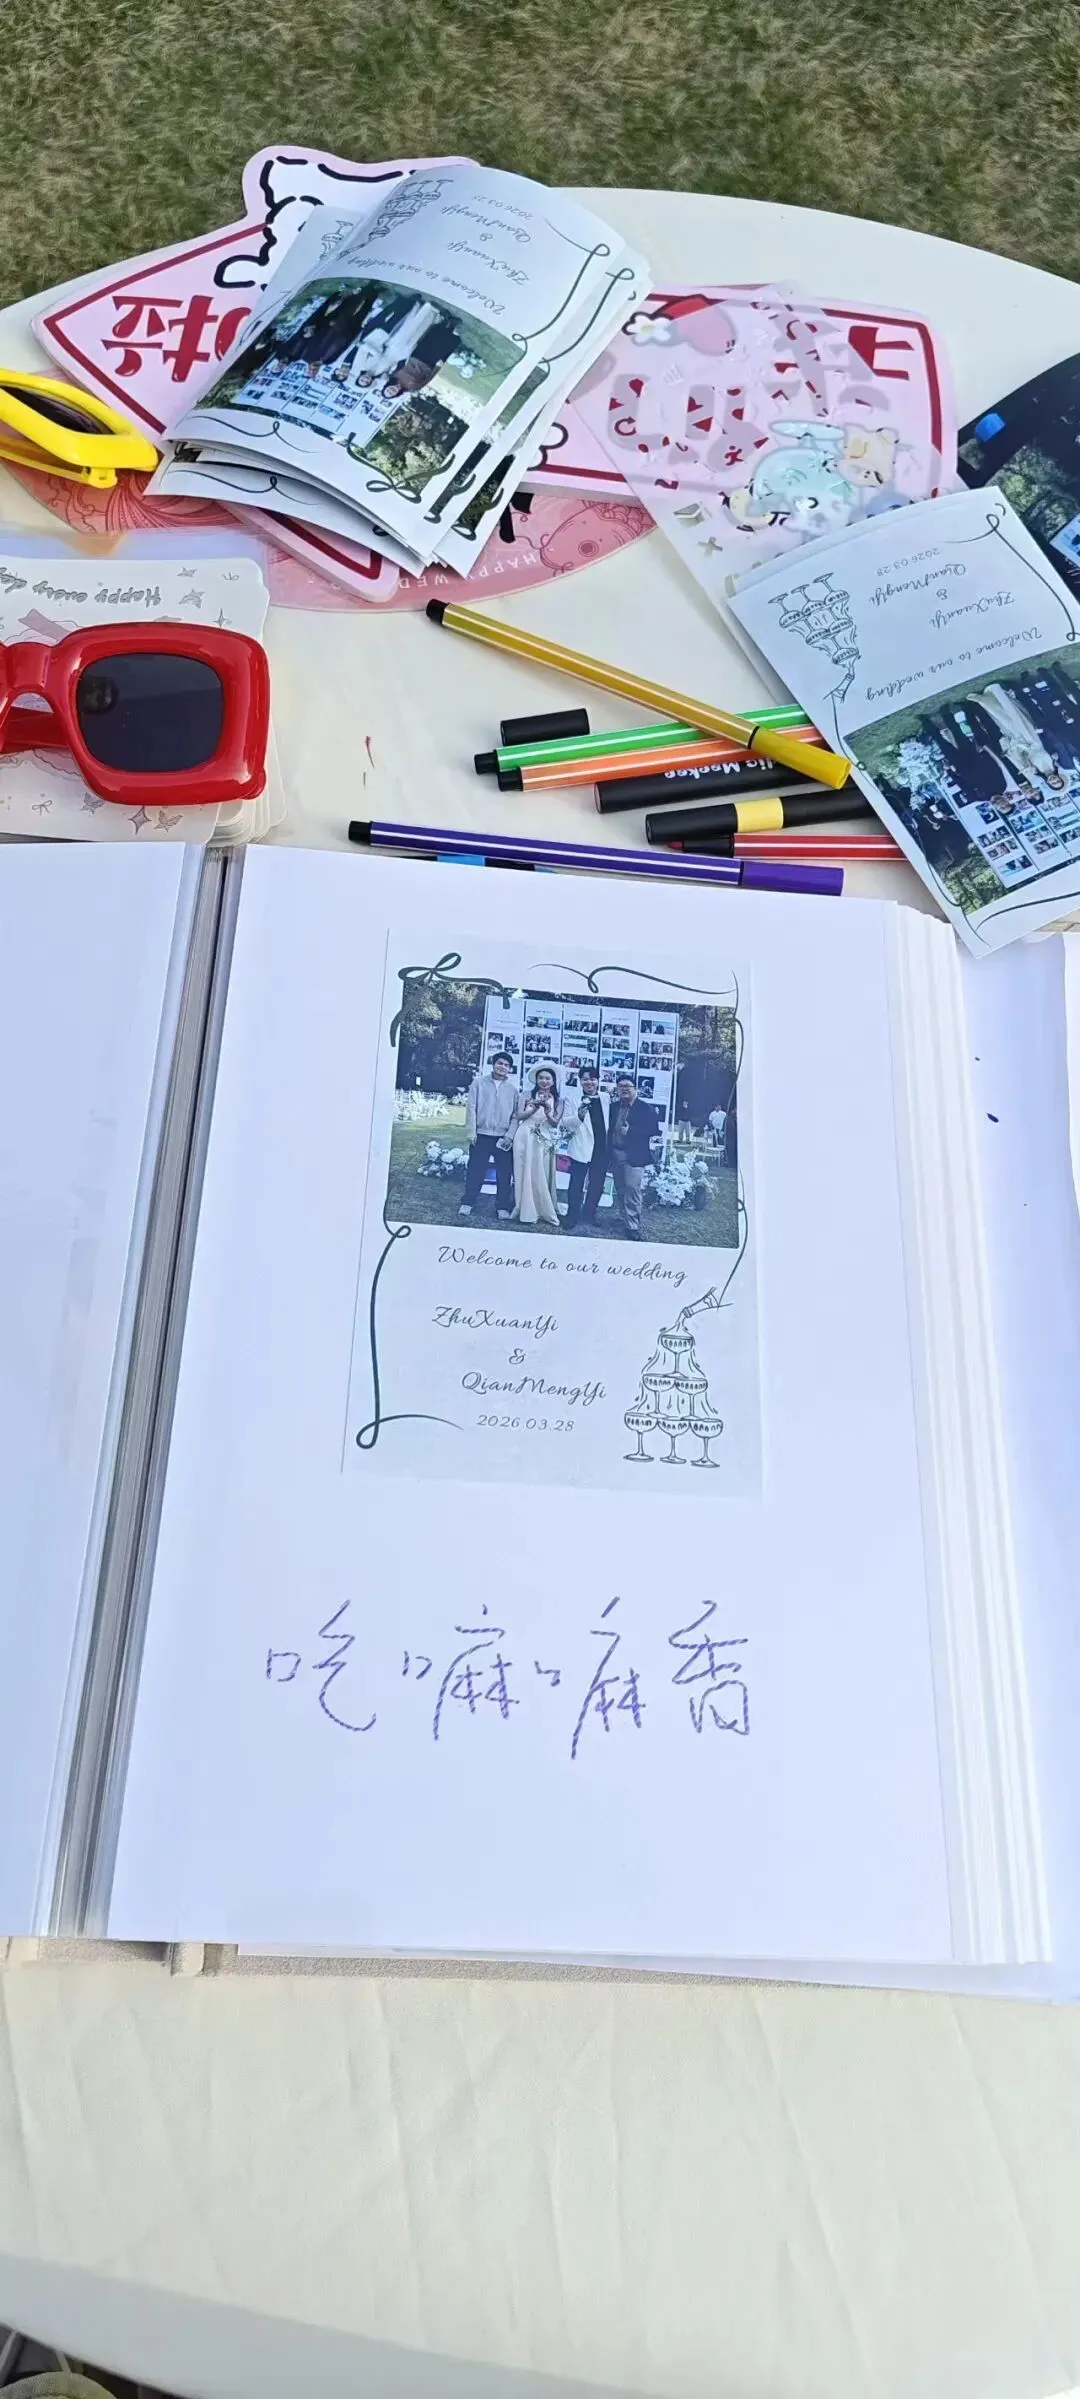 2026.03.28
QianMengYi
&
ZhuXuanYi
Welcome to our wedding
HAPPY WED
2026.03.28
QianMengYi
&
ZhuXuanYi
Welcome to our wedding
Happy every day
Welcome to our wedding
ZhuXuanYi
&
QianMengYi
2026.03.28
吃嘛嘛香